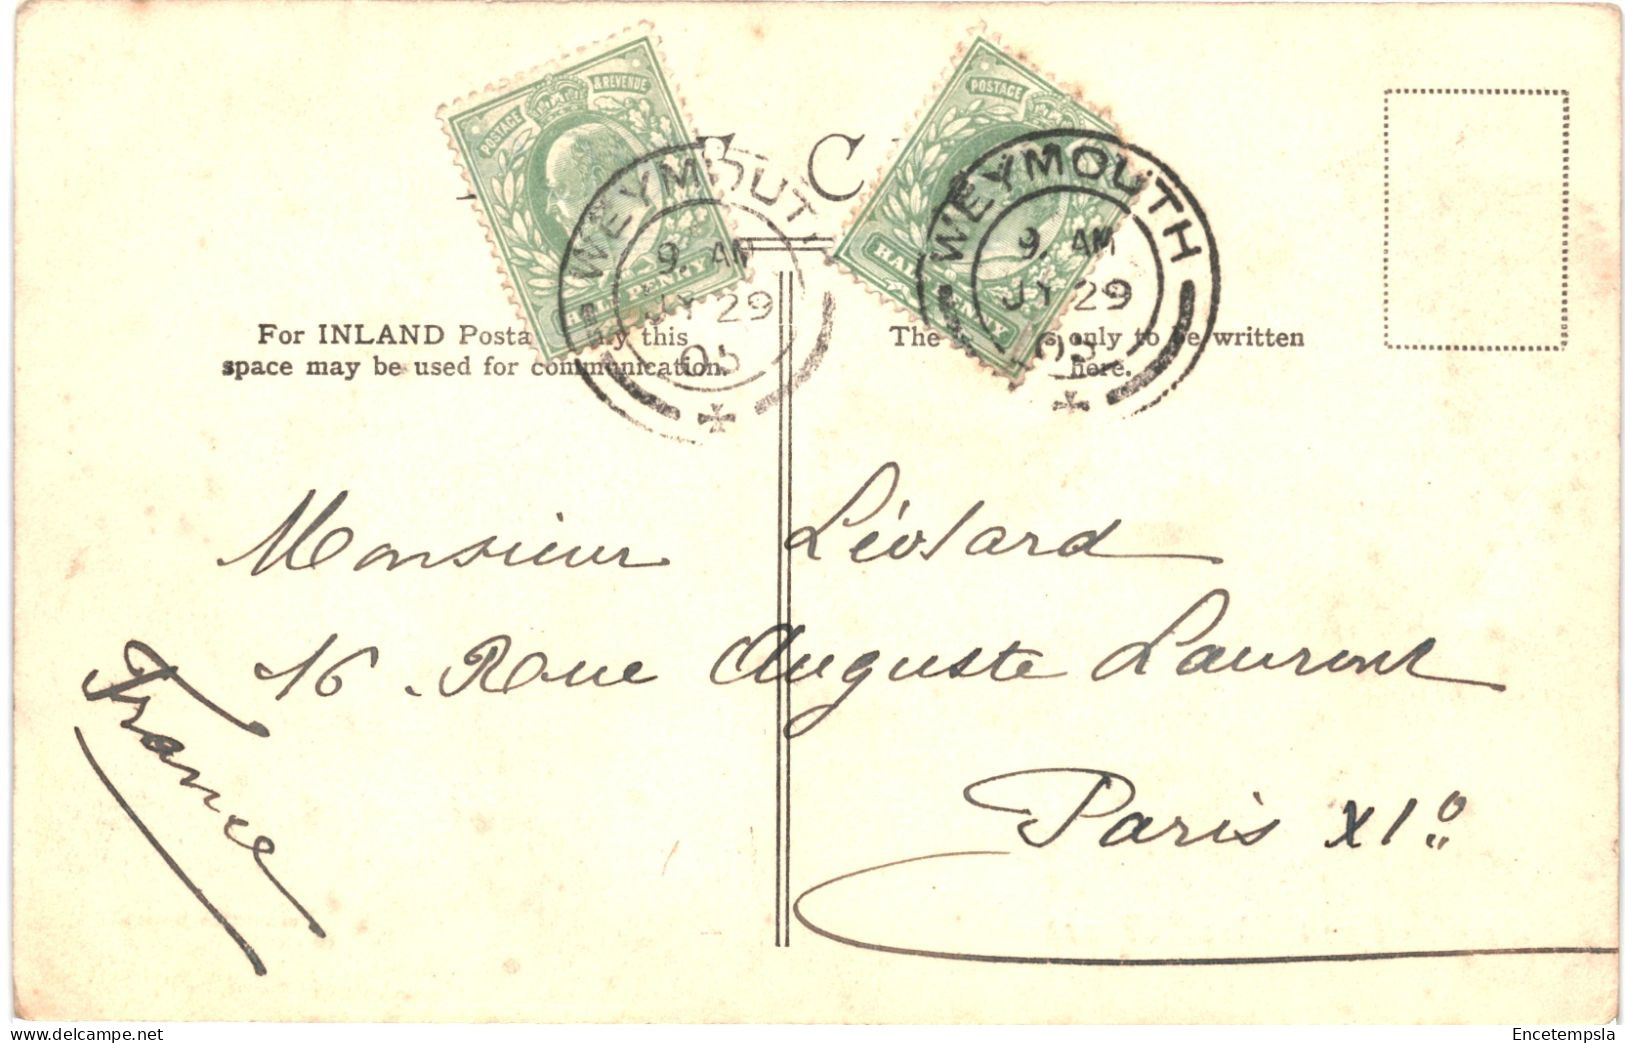 POSTAGE & REVENUE
HALF PENNY
WEYMOUTH
9. AM
JY 29
05
POSTAGE
HALF PENNY
WEYMOUTH
9. AM
JY 29
05
C
For INLAND Posta this
space may be used for communication.
The only to be written
here.
Monsieur Léotard
16. Rue Auguste Laurent
Paris XIº
France
delcampe.net
Encetempsla